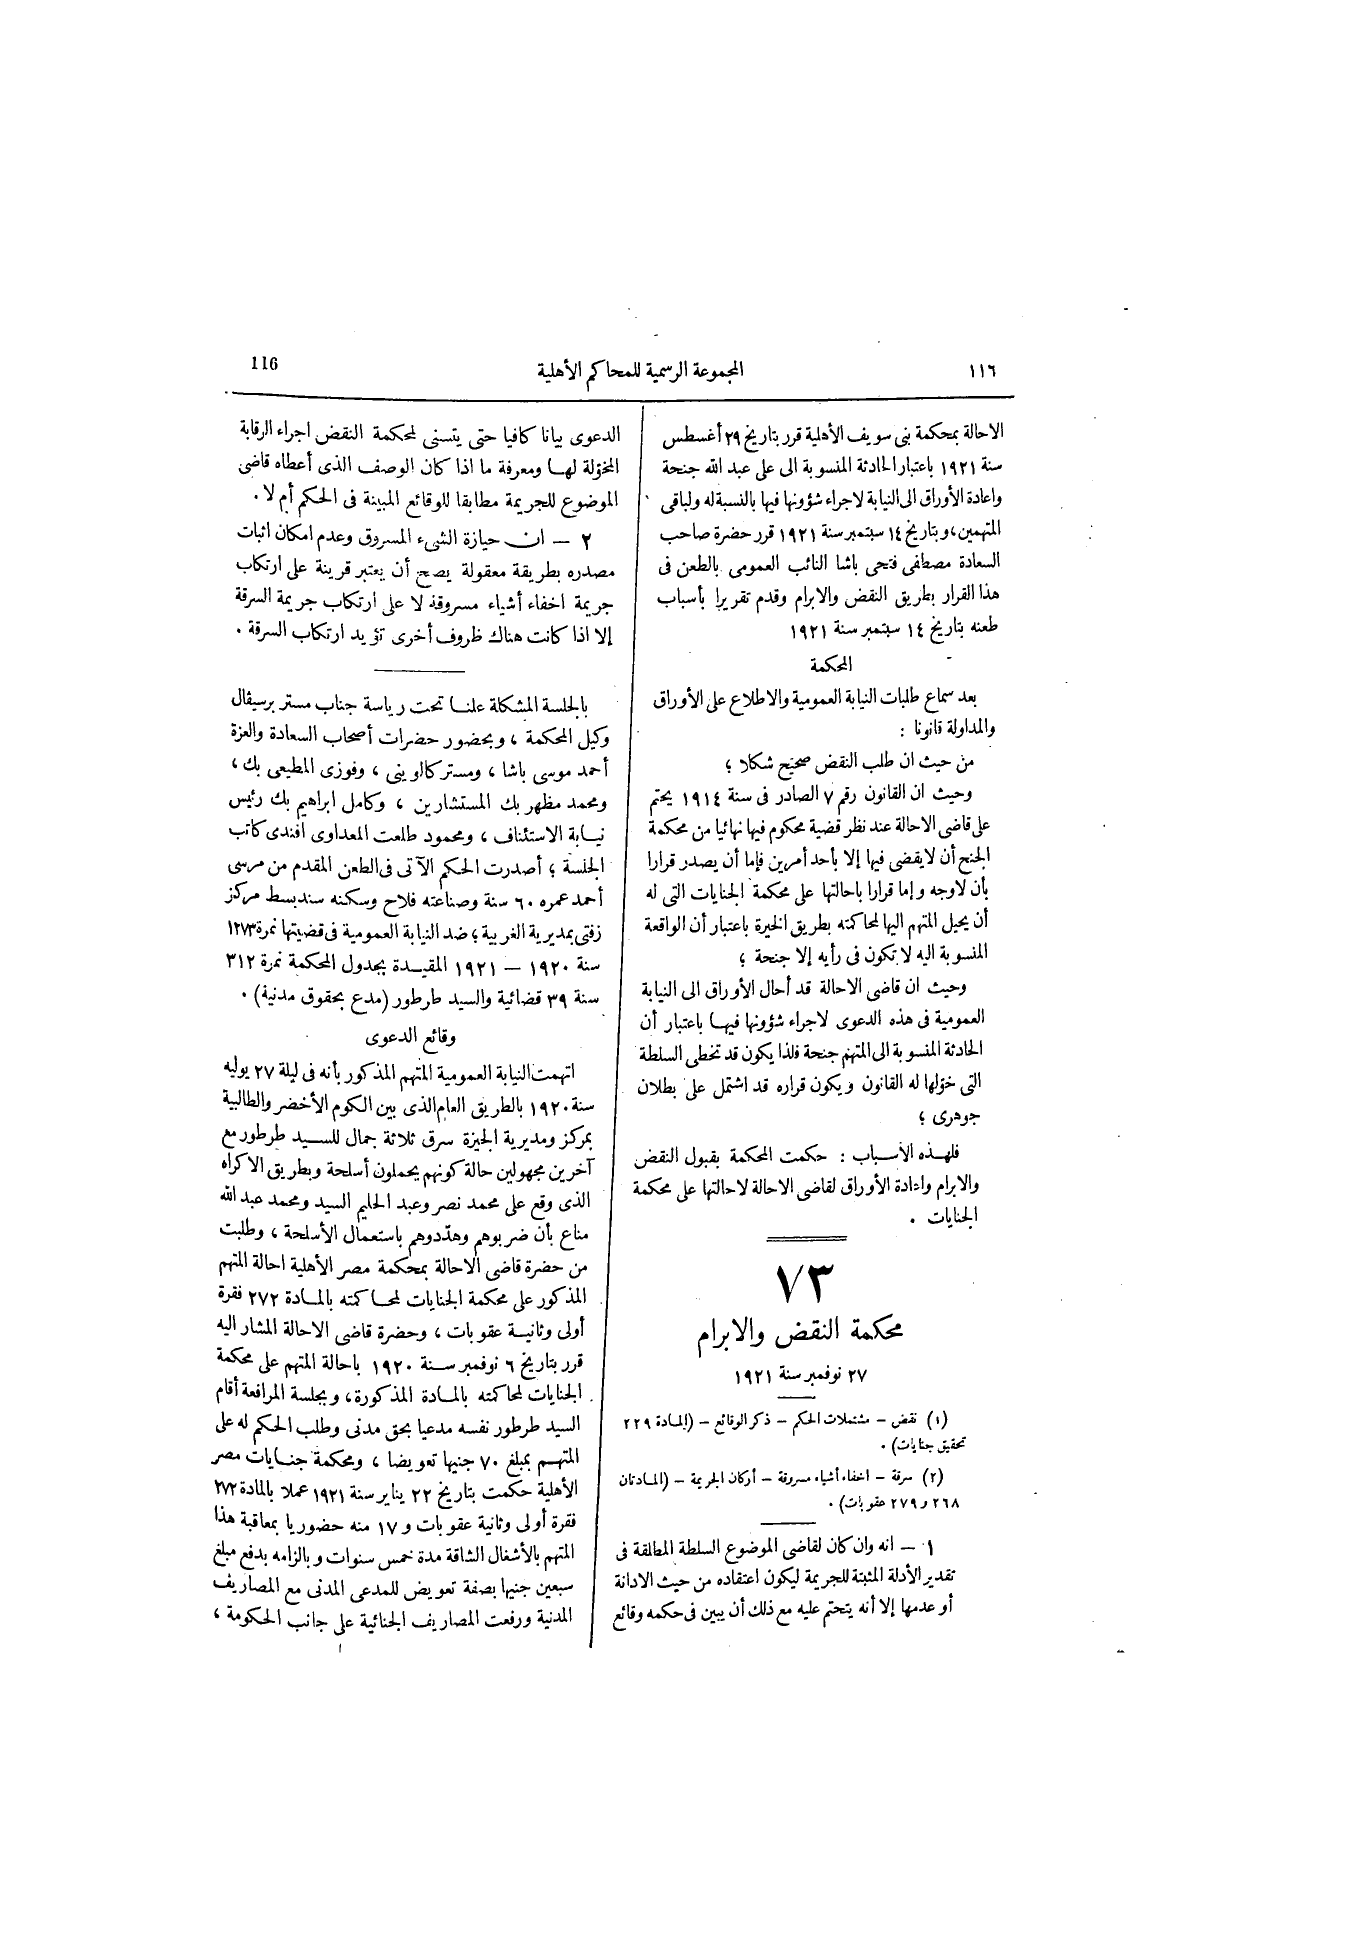 ١١٦ المجموعة الرسمية للمحاكم الأهلية 116
الاحالة بمحكمة بنى سويف الأهلية قرر بتاريخ ٢٩ أغسطس
سنة ١٩٢١ باعتبار الحادثة المنسوبة الى على عبد الله جنحة
واعادة الأوراق الى النيابة لاجراء شؤونها فيها بالنسبة له ولباقى
المتهمين، وبتاريخ ١٤ سبتمبر سنة ١٩٢١ قرر حضرة صاحب
السعادة مصطفى فتحى باشا النائب العمومى بالطعن فى
هذا القرار بطريق النقض والابرام وقدم تقريرا بأسباب
طعنه بتاريخ ١٤ سبتمبر سنة ١٩٢١
المحكمة
بعد سماع طلبات النيابة العمومية والاطلاع على الأوراق
والمداولة قانونا :
من حيث ان طلب النقض صحيح شكلا ؛
وحيث ان القانون رقم ٧ الصادر فى سنة ١٩١٤ يحتم
على قاضى الاحالة عند نظر قضية محكوم فيها نهائيا من محكمة
الجنح أن لا يقضى فيها إلا بأحد أمرين فإما أن يصدر قرارا
بأن لاوجه وإما قرارا باحالتها على محكمة الجنايات التى له
أن يحيل المتهم اليها لمحاكمته بطريق الخيرة باعتبار أن الواقعة
المنسوبة اليه لا تكون فى رأيه إلا جنحة ؛
وحيث ان قاضى الاحالة قد أحال الأوراق الى النيابة
العمومية فى هذه الدعوى لاجراء شؤونها فيها باعتبار أن
الحادثة المنسوبة الى المتهم جنحة فلذا يكون قد تخطى السلطة
التى خوّلها له القانون ويكون قراره قد اشتمل على بطلان
جوهرى ؛
فلهذه الأسباب : حكمت المحكمة بقبول النقض
والابرام واعادة الأوراق لقاضى الاحالة لاحالتها على محكمة
الجنايات .
٧٣
محكمة النقض والابرام
٢٧ نوفمبر سنة ١٩٢١
(١) نقض – مشتملات الحكم – ذكر الوقائع – (المادة ٢٢٩
تحقيق جنايات) .
(٢) سرقة – اخفاء أشياء مسروقة – أركان الجريمة – (المادتان
٢٦٨ و٢٧٩ عقوبات) .
١ – انه وان كان لقاضى الموضوع السلطة المطلقة فى
تقدير الأدلة المثبتة للجريمة ليكون اعتقاده من حيث الادانة
أو عدمها إلا أنه يتحتم عليه مع ذلك أن يبين فى حكمه وقائع
الدعوى بيانا كافيا حتى يتسنى لمحكمة النقض اجراء الرقابة
المخوّلة لها ومعرفة ما اذا كان الوصف الذى أعطاه قاضى
الموضوع للجريمة مطابقا للوقائع المبينة فى الحكم أم لا .
٢ – ان حيازة الشىء المسروق وعدم امكان اثبات
مصدره بطريقة معقولة يصح أن يعتبر قرينة على ارتكاب
جريمة اخفاء أشياء مسروقة لا على ارتكاب جريمة السرقة
إلا اذا كانت هناك ظروف أخرى تؤيد ارتكاب السرقة .
بالجلسة المشكلة علنا تحت رياسة جناب مستر برسيڤال
وكيل المحكمة ، وبحضور حضرات أصحاب السعادة والعزة
أحمد موسى باشا ، ومستر كالوينى ، وفوزى المطيعى بك ،
ومحمد مظهر بك المستشارين ، وكامل ابراهيم بك رئيس
نيابة الاستئناف ، ومحمود طلعت المعداوى افندى كاتب
الجلسة ؛ أصدرت الحكم الآتى فى الطعن المقدم من مرسى
أحمد عمره ٦٠ سنة وصناعته فلاح وسكنه سندبسط مركز
زفتى بمديرية الغربية ؛ ضد النيابة العمومية فى قضيتها نمرة ١٢٧٣
سنة ١٩٢٠ – ١٩٢١ المقيدة بجدول المحكمة نمرة ٣١٢
سنة ٣٩ قضائية والسيد طرطور (مدع بحقوق مدنية) .
وقائع الدعوى
اتهمت النيابة العمومية المتهم المذكور بأنه فى ليلة ٢٧ يوليه
سنة ١٩٢٠ بالطريق العام الذى بين الكوم الأخضر والطالبية
بمركز ومديرية الجيزة سرق ثلاثة جمال للسيد طرطور مع
آخرين مجهولين حالة كونهم يحملون أسلحة وبطريق الاكراه
الذى وقع على محمد نصر وعبد الحليم السيد ومحمد عبد الله
مناع بأن ضربوهم وهدّدوهم باستعمال الأسلحة ، وطلبت
من حضرة قاضى الاحالة بمحكمة مصر الأهلية احالة المتهم
المذكور على محكمة الجنايات لمحاكمته بالمادة ٢٧٢ فقرة
أولى وثانية عقوبات ، وحضرة قاضى الاحالة المشار اليه
قرر بتاريخ ٦ نوفمبر سنة ١٩٢٠ باحالة المتهم على محكمة
الجنايات لمحاكمته بالمادة المذكورة ، وبجلسة المرافعة أقام
السيد طرطور نفسه مدعيا بحق مدنى وطلب الحكم له على
المتهم بمبلغ ٧٠ جنيها تعويضا ، ومحكمة جنايات مصر
الأهلية حكمت بتاريخ ٢٢ يناير سنة ١٩٢١ عملا بالمادة ٢٧٢
فقرة أولى وثانية عقوبات و ١٧ منه حضوريا بمعاقبة هذا
المتهم بالأشغال الشاقة مدة خمس سنوات وبالزامه بدفع مبلغ
سبعين جنيها بصفة تعويض للمدعى المدنى مع المصاريف
المدنية ورفعت المصاريف الجنائية على جانب الحكومة ،